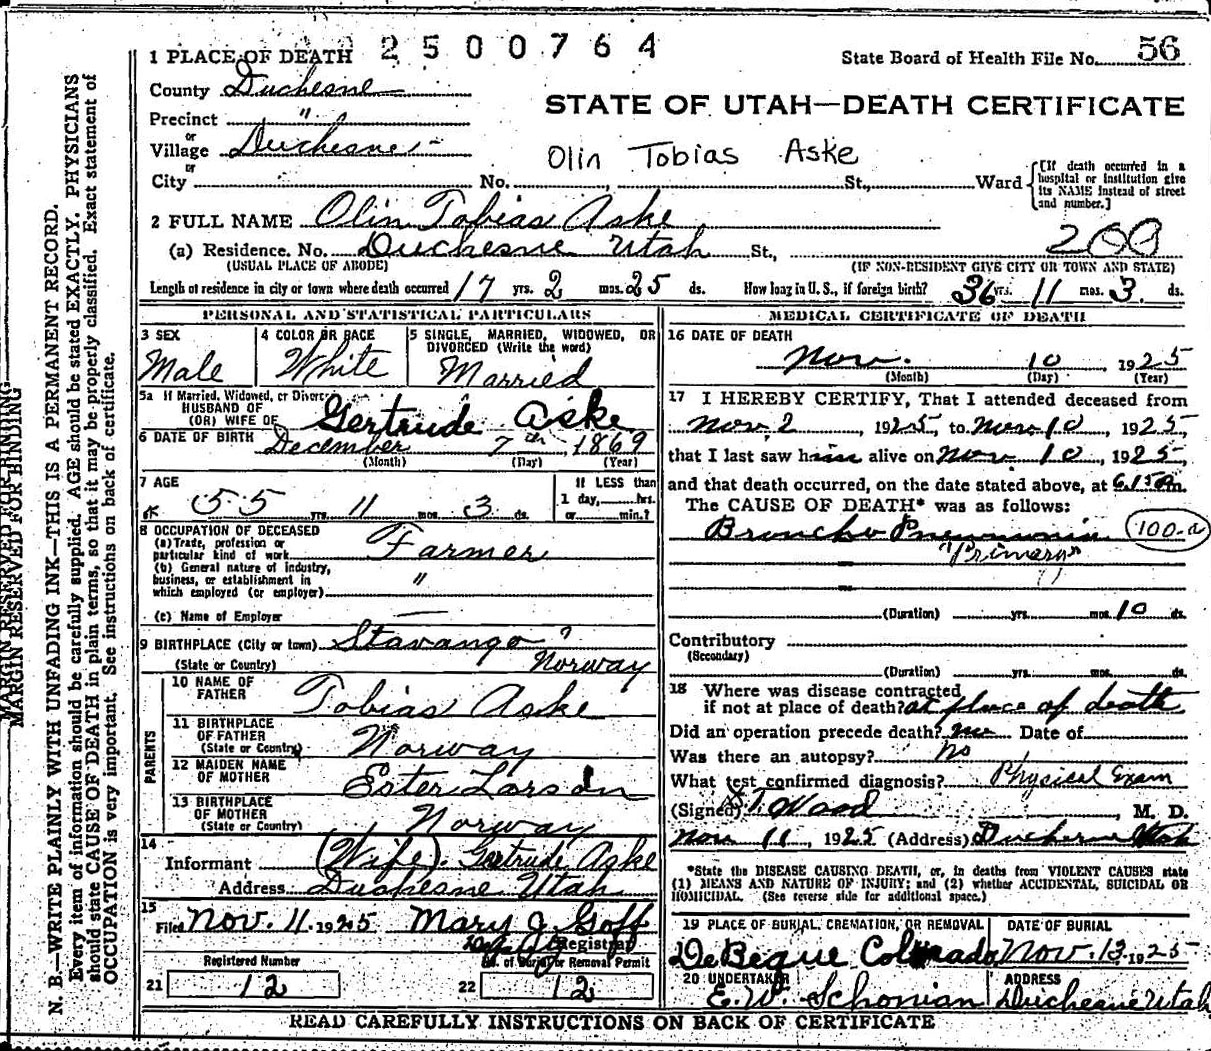 1 PLACE OF DEATH 2500764
State Board of Health File No. 56
County Duchesne
STATE OF UTAH—DEATH CERTIFICATE
Precinct "
or
Village Duchesne
Olin Tobias Aske
or
City No. St., Ward
[If death occurred in a hospital or institution give its NAME instead of street and number.]
2 FULL NAME Olin Tobias Aske
200
(a) Residence. No. Duchesne Utah St.,
(USUAL PLACE OF ABODE)
(IF NON-RESIDENT GIVE CITY OR TOWN AND STATE)
Length of residence in city or town where death occurred 17 yrs. 2 mos. 25 ds. How long in U. S., if foreign birth? 36 yrs. 11 mos. 3 ds.
PERSONAL AND STATISTICAL PARTICULARS
3 SEX
Male
4 COLOR OR RACE
White
5 SINGLE, MARRIED, WIDOWED, OR
DIVORCED (Write the word)
Married
5a If Married, Widowed, or Divorced
HUSBAND OF
(OR) WIFE OF Gertrude Aske
6 DATE OF BIRTH December 7th, 1869
(Month) (Day) (Year)
7 AGE
55 yrs. 11 mos. 3 ds.
If LESS than
1 day, hrs.
or min.?
8 OCCUPATION OF DECEASED
(a) Trade, profession or
particular kind of work Farmer
(b) General nature of industry,
business, or establishment in
which employed (or employer) "
(c) Name of Employer —
9 BIRTHPLACE (City or town) Stavango ?
(State or Country) Norway
PARENTS
10 NAME OF
FATHER Tobias Aske
11 BIRTHPLACE
OF FATHER
(State or Country) Norway
12 MAIDEN NAME
OF MOTHER Ester Larson
13 BIRTHPLACE
OF MOTHER
(State or Country) Norway
14
Informant (Wife). Gertrude Aske
Address Duchesne Utah
15
Filed Nov. 11, 1925 Mary J. Goff
Registrar
Registered Number
No. of Burial or Removal Permit
21 12
22 12
MEDICAL CERTIFICATE OF DEATH
16 DATE OF DEATH
Nov. 10 1925
(Month) (Day) (Year)
17 I HEREBY CERTIFY, That I attended deceased from
Nov. 2, 1925, to Nov. 10, 1925,
that I last saw him alive on Nov. 10, 1925,
and that death occurred, on the date stated above, at 6.15 m.
The CAUSE OF DEATH* was as follows:
Broncho Pneumonia 100-a
"Primary"
(Duration) yrs. mos. 10 ds.
Contributory
(Secondary)
(Duration) yrs. mos. ds.
18 Where was disease contracted
if not at place of death? at place of death
Did an operation precede death? no Date of
Was there an autopsy? No
What test confirmed diagnosis? Physical Exam
(Signed) Wood, M. D.
Nov 11, 1925 (Address) Duchesne Utah
*State the DISEASE CAUSING DEATH, or, in deaths from VIOLENT CAUSES state
(1) MEANS AND NATURE OF INJURY; and (2) whether ACCIDENTAL, SUICIDAL OR
HOMICIDAL. (See reverse side for additional space.)
19 PLACE OF BURIAL, CREMATION, OR REMOVAL
De Beque Colorado
DATE OF BURIAL
Nov. 13, 1925
20 UNDERTAKER
E. W. Schonian
ADDRESS
Duchesne Utah
READ CAREFULLY INSTRUCTIONS ON BACK OF CERTIFICATE
MARGIN RESERVED FOR BINDING
MARGIN RESERVED FOR BINDING
N. B.—WRITE PLAINLY WITH UNFADING INK—THIS IS A PERMANENT RECORD.
Every item of information should be carefully supplied. AGE should be stated EXACTLY. PHYSICIANS
should state CAUSE OF DEATH in plain terms, so that it may be properly classified. Exact statement of
OCCUPATION is very important. See instructions on back of certificate.